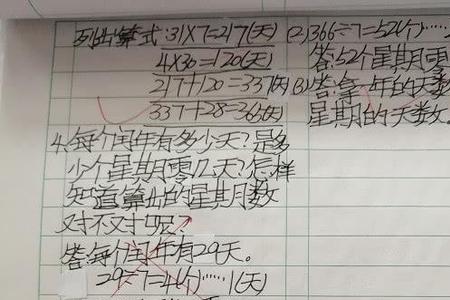 列出算式:31×7=217(天)
4×30=120(天)
217+120=337(天)
337+28=365(天)
4.每个闰年有多少天?是多
少个星期零几天?怎样
知道算出的星期数
对不对呢?
答:每个闰年有29天。
29÷7=4(个)……1(天)
(2)366÷7=52(个)…
答:52个星期零
(3)答:拿一年的天数
星期的天数。